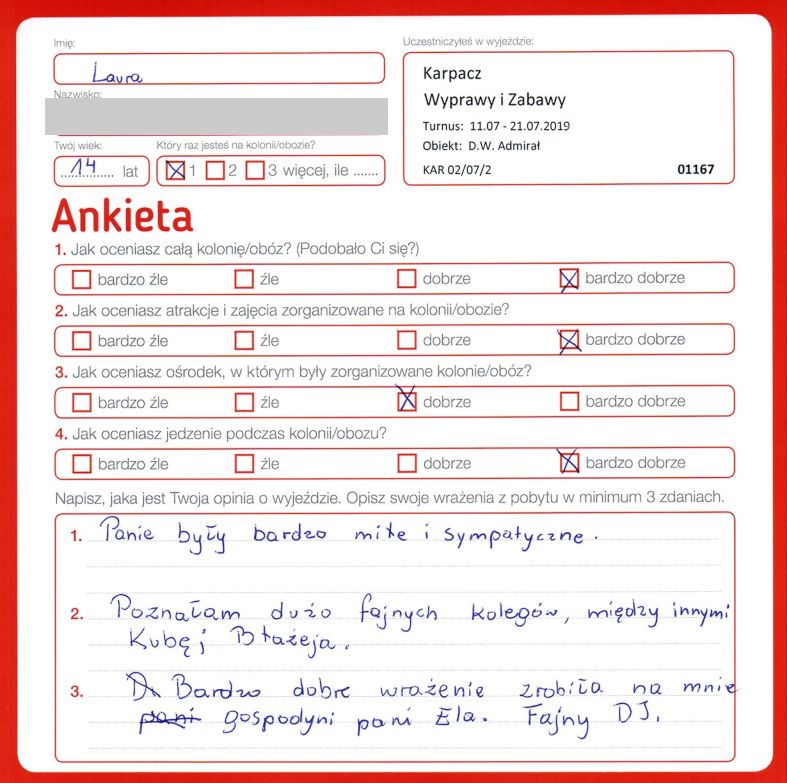 Imię:
Laura
Nazwisko:
Twój wiek:
14 lat
Który raz jesteś na kolonii/obozie?
1 2 3 więcej, ile .......
Uczestniczyłeś w wyjeździe:
Karpacz
Wyprawy i Zabawy
Turnus: 11.07 - 21.07.2019
Obiekt: D.W. Admirał
KAR 02/07/2 01167
Ankieta
1. Jak oceniasz całą kolonię/obóz? (Podobało Ci się?)
bardzo źle źle dobrze bardzo dobrze
2. Jak oceniasz atrakcje i zajęcia zorganizowane na kolonii/obozie?
bardzo źle źle dobrze bardzo dobrze
3. Jak oceniasz ośrodek, w którym były zorganizowane kolonie/obóz?
bardzo źle źle dobrze bardzo dobrze
4. Jak oceniasz jedzenie podczas kolonii/obozu?
bardzo źle źle dobrze bardzo dobrze
Napisz, jaka jest Twoja opinia o wyjeździe. Opisz swoje wrażenia z pobytu w minimum 3 zdaniach.
1. Panie były bardzo miłe i sympatyczne.
2. Poznałam dużo fajnych kolegów, między innymi
Kubę i Błażeja.
3. Bardzo dobre wrażenie zrobiła na mnie
pani gospodyni pani Ela. Fajny DJ.